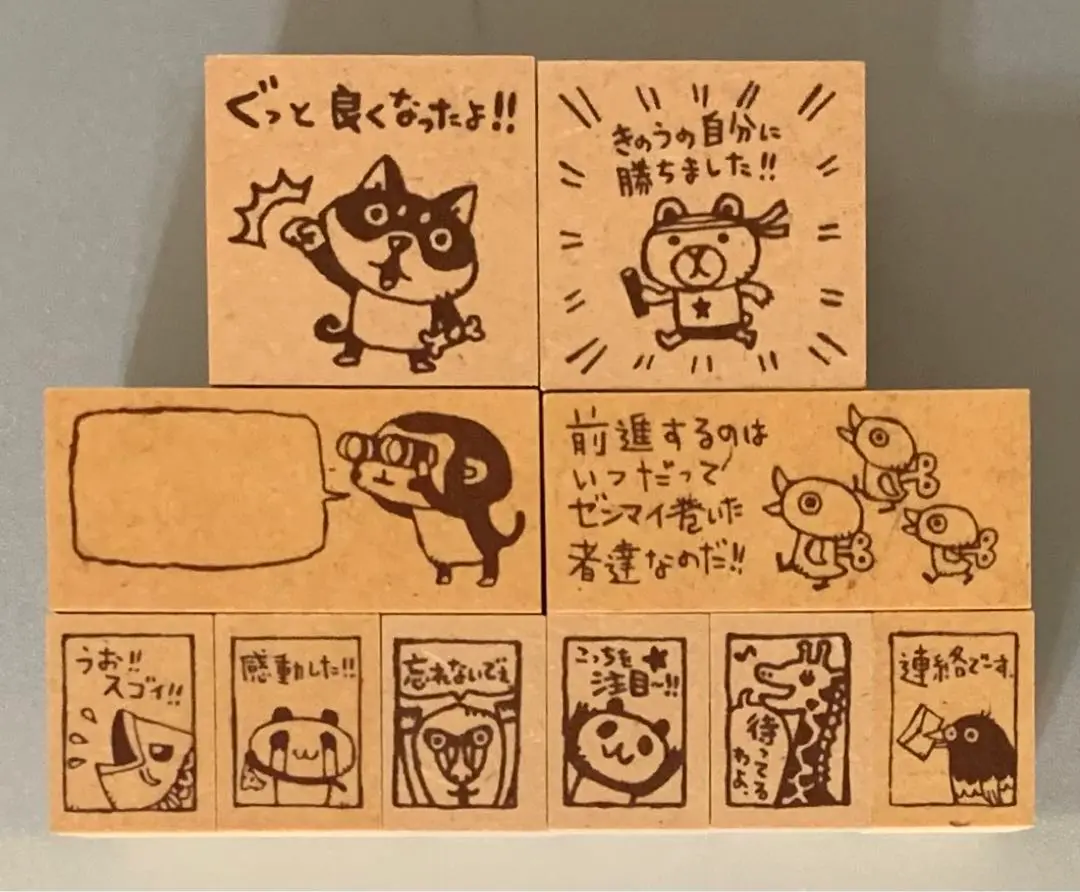 ぐっと良くなったよ!!
きのうの自分に
勝ちました!!
前進するのは
いつだって
ゼンマイ巻いた
者達なのだ!!
うお!!
スゴイ!!
感動した!!
忘れないでぇ
こっちを
注目〜!!
待ってる
わよ、
連絡でーす、